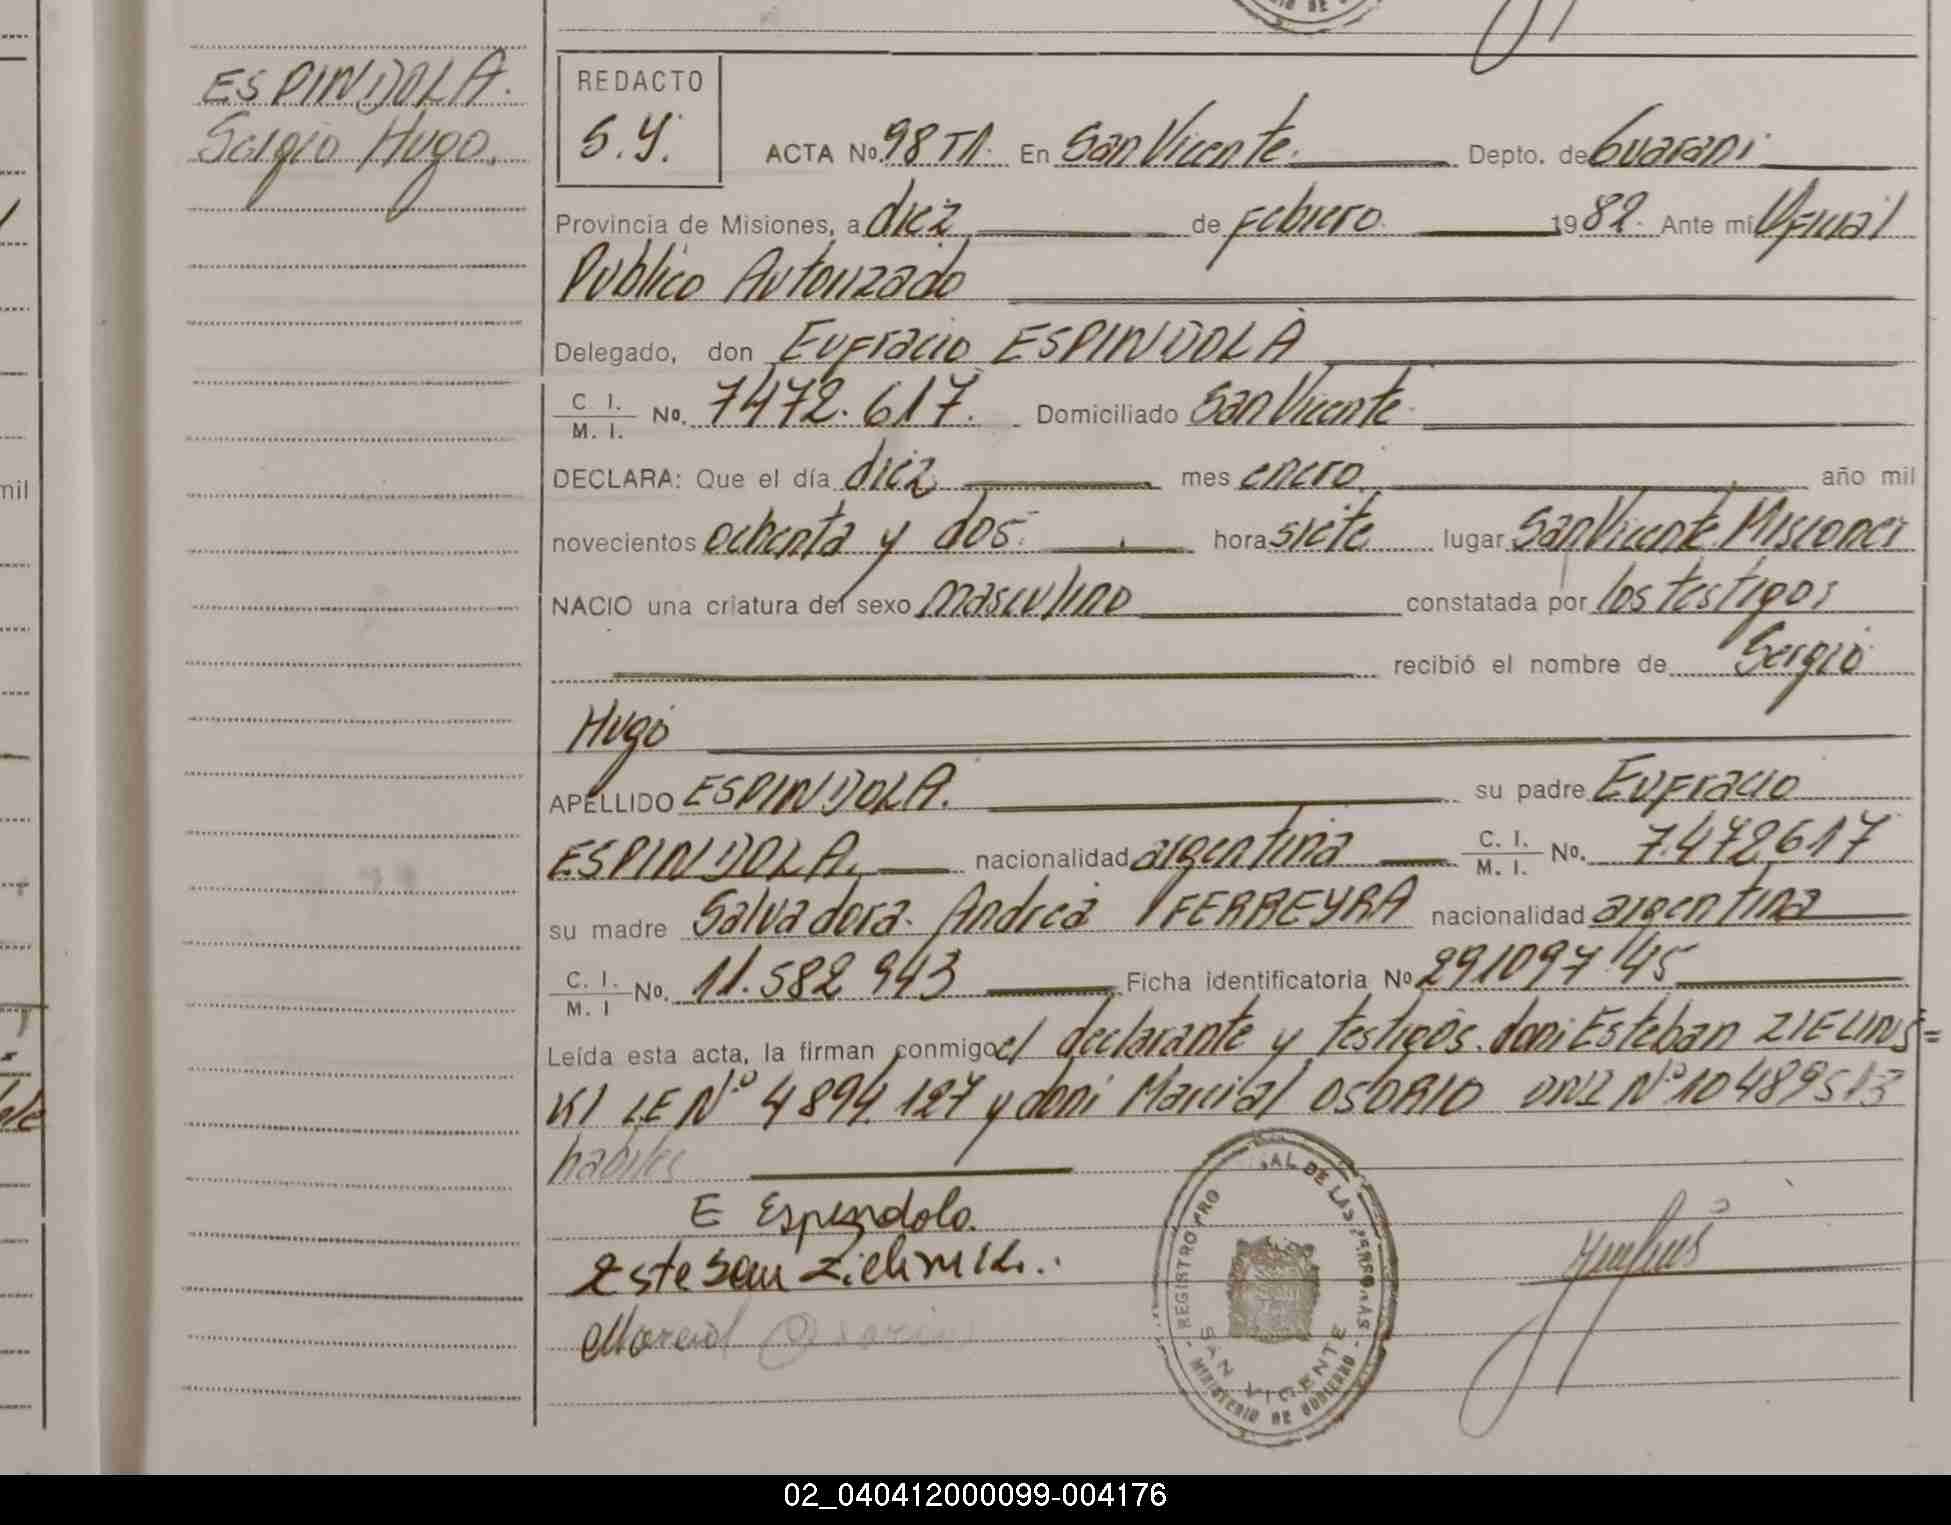 ESPINDOLA.
Sergio Hugo.
REDACTO
S.Y.
ACTA No. 98 T1. En San Vicente. Depto. de Guarani
Provincia de Misiones, a diez de Febrero 1982. Ante mí Oficial
Publico Autorizado
Delegado, don Eufracio ESPINDOLA
C. I. / M. I. No. 7472.617. Domiciliado San Vicente
DECLARA: Que el día diez mes enero año mil
novecientos ochenta y dos. hora siete lugar San Vicente Misiones
NACIO una criatura del sexo masculino constatada por los testigos
recibió el nombre de Sergio
Hugo
APELLIDO ESPINDOLA. su padre Eufracio
ESPINDOLA. nacionalidad argentina C. I. / M. I. No. 7.472617
su madre Salvadora Andrea FERREYRA nacionalidad argentina
C. I. / M. I No. 11.582 943 Ficha identificatoria No 291097/45
Leída esta acta, la firman conmigo el declarante y testigos. don: Esteban ZIELINS=
KI LE Nº 4894.127 y don: Marcial OSORIO DNI Nº 10489513
habiles
E Espindola.
Esteban Zielinski.
Marcial Osorio
REGISTRO PRO AL DE LAS PERSONAS
SAN VICENTE
MINISTERIO DE GOBIERNO
mil
02_040412000099-004176